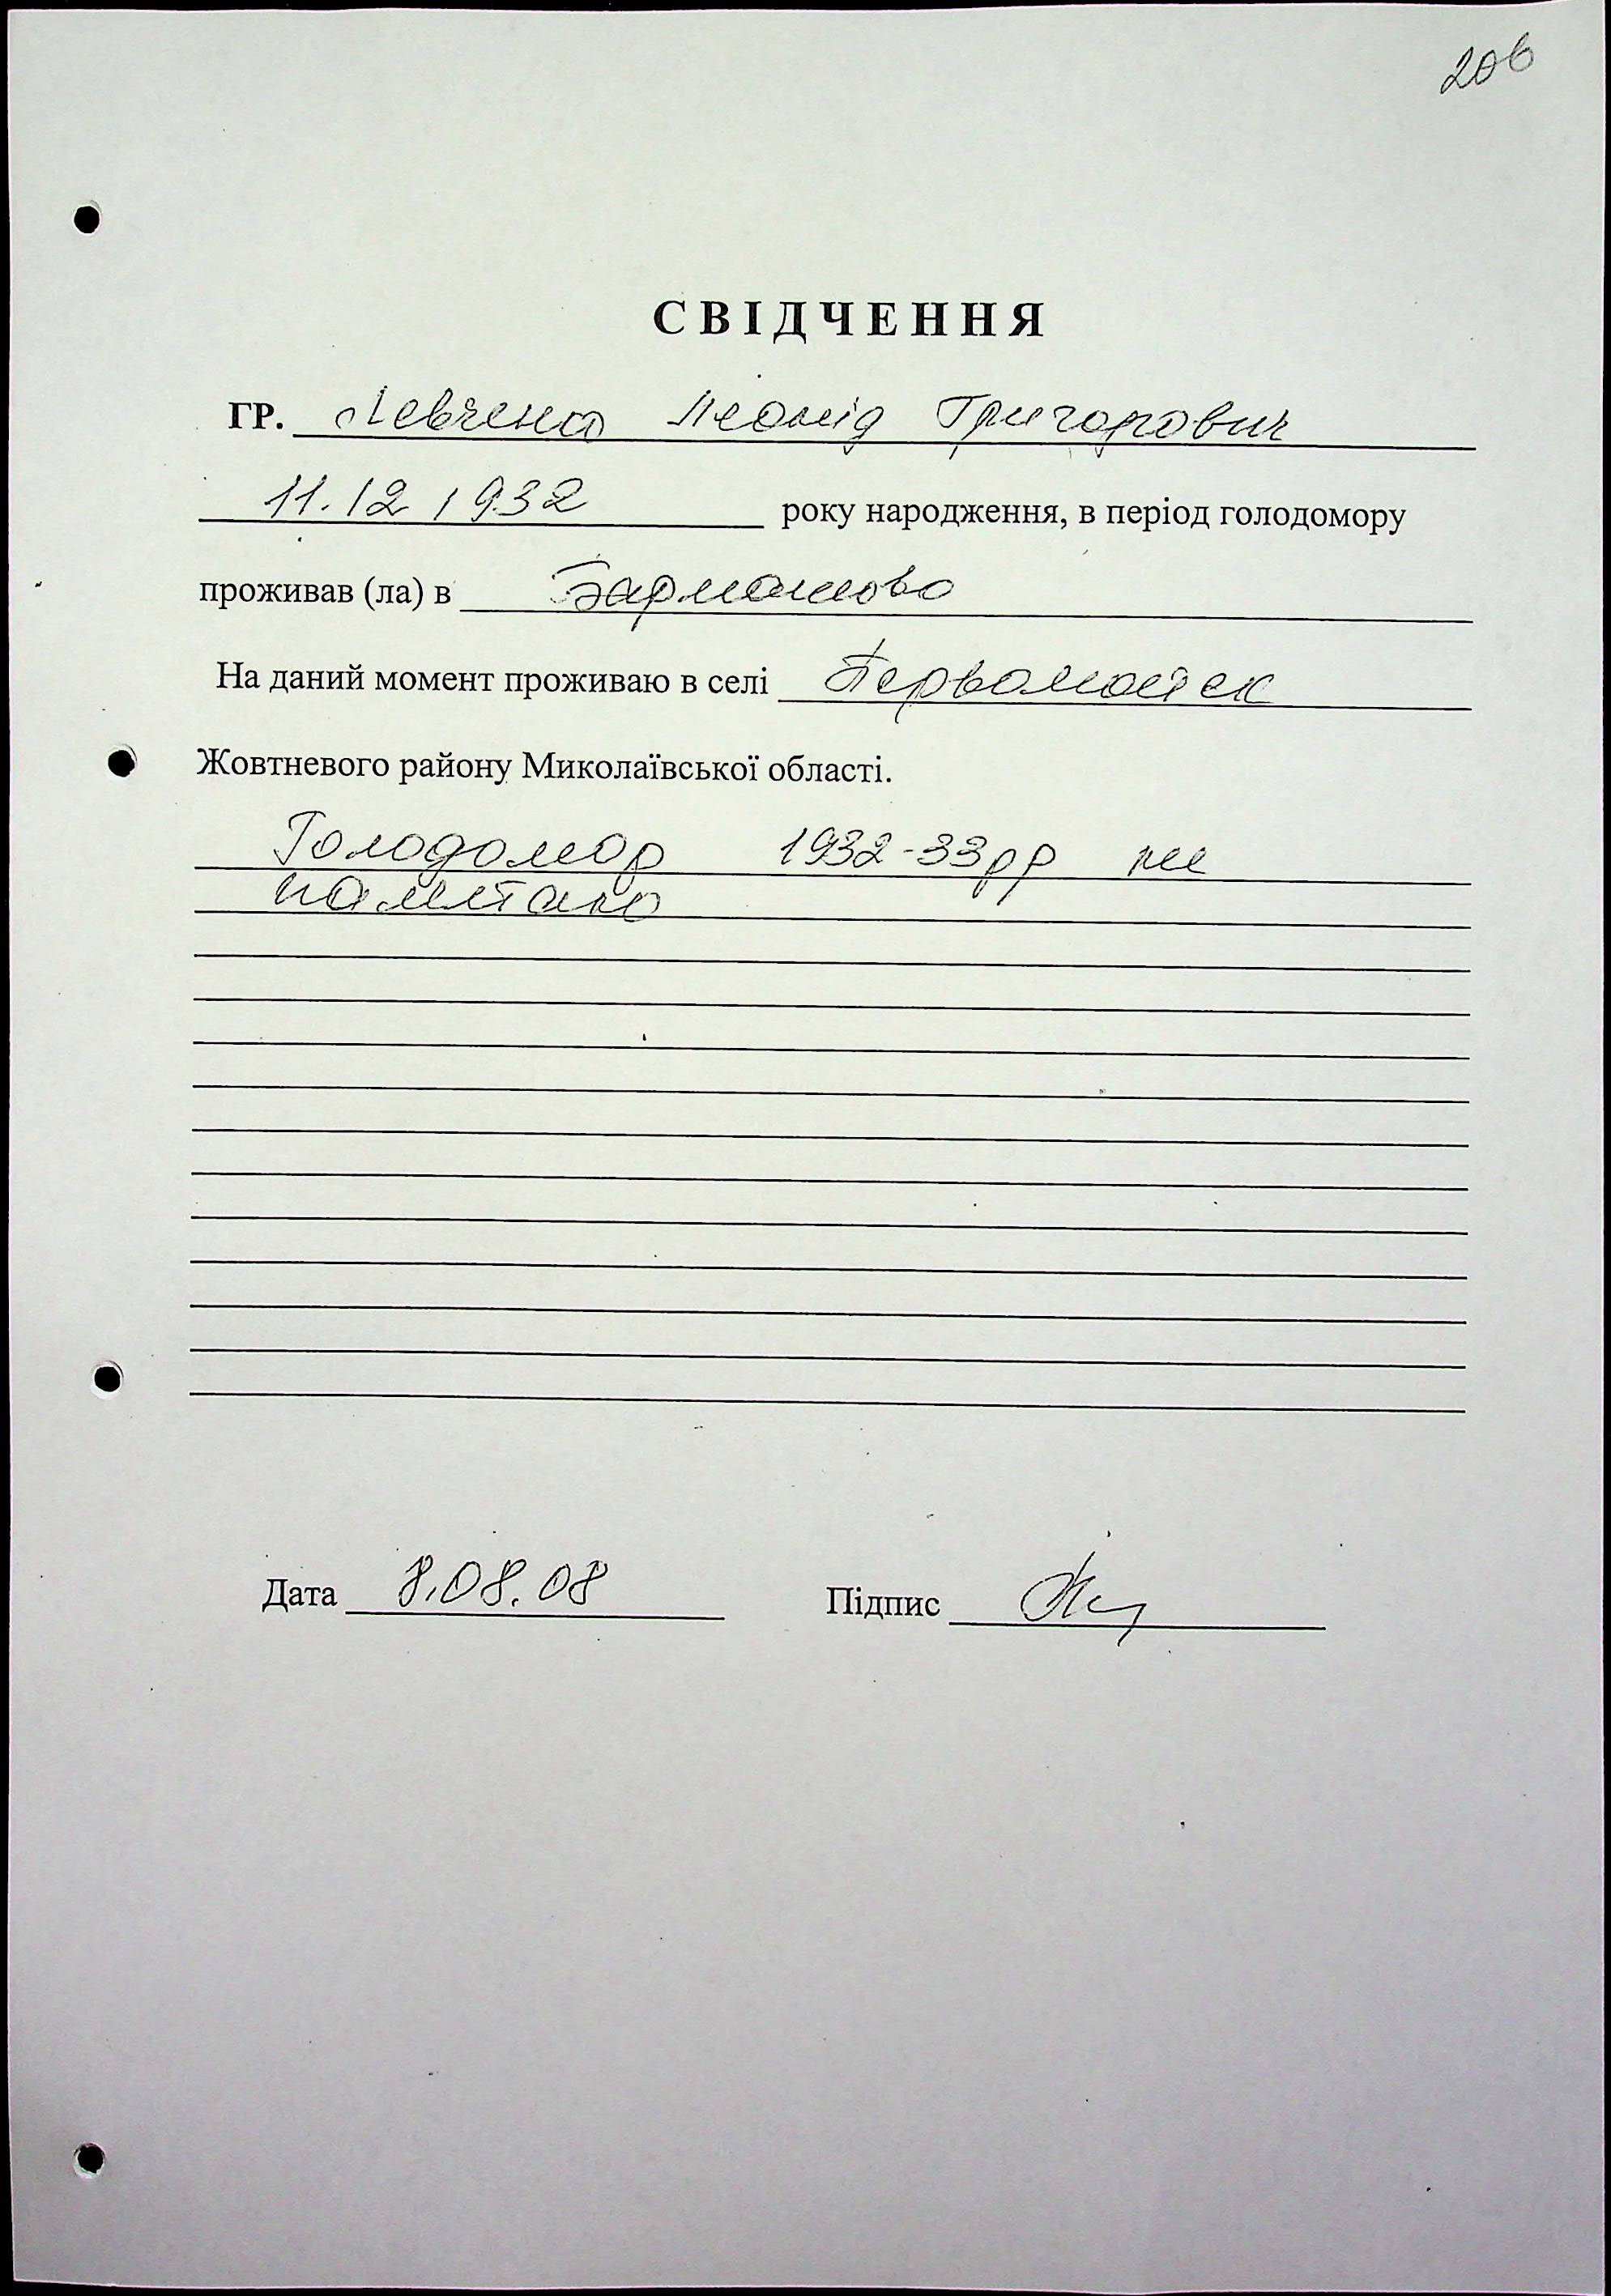 206
СВІДЧЕННЯ
ГР. Левченко Леонід Григорович
11.12 1932 року народження, в період голодомору
проживав (ла) в Бармашово
На даний момент проживаю в селі Первомайск
Жовтневого району Миколаївської області.
Голодомор 1932-33рр не
памятаю
Дата 8.08.08 Підпис